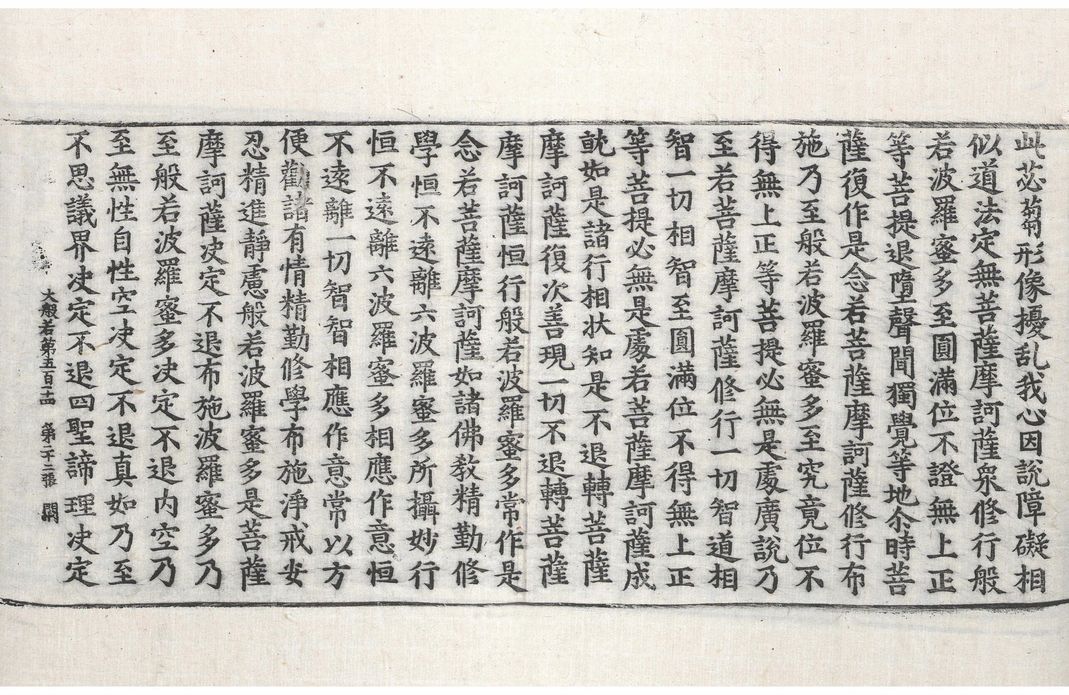 此苾蒭形像擾乱我心因說障礙相
似道法定無菩薩摩訶薩衆修行般
若波羅蜜多至圓滿位不證無上正
等菩提退墮聲聞獨覺等地尒時菩
薩復作是念若菩薩摩訶薩修行布
施乃至般若波羅蜜多至究竟位不
得無上正等菩提必無是處廣說乃
至若菩薩摩訶薩修行一切智道相
智一切相智至圓滿位不得無上正
等菩提必無是處若菩薩摩訶薩成
就如是諸行相狀知是不退轉菩薩
摩訶薩復次善現一切不退轉菩薩
摩訶薩恒行般若波羅蜜多常作是
念若菩薩摩訶薩如諸佛教精勤修
學恒不遠離六波羅蜜多所攝妙行
恒不遠離六波羅蜜多相應作意恒
不遠離一切智智相應作意常以方
便勸諸有情精勤修學布施淨戒安
忍精進靜慮般若波羅蜜多是菩薩
摩訶薩决定不退布施波羅蜜多乃
至般若波羅蜜多决定不退内空乃
至無性自性空决定不退真如乃至
不思議界决定不退四聖諦理决定
大般若第五百十四 第二十二張